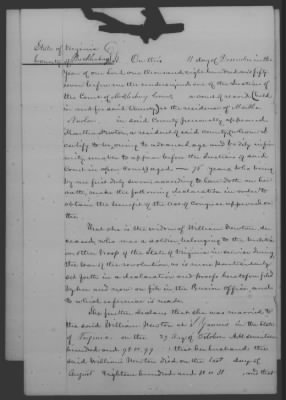 State of Virginia
County of Mecklenburg Ss. On this 11 day of December in the
Year of our Lord one thousand eight hundred and fifty
seven before me the undersigned one of the Justices of
the Court of Mecklenburg County a court of record (held
in and for said County) at the residence of Martha
Newton in said County personally appeared
Martha Newton a resident of said county (whom I
certify to be owing to advanced age and bodily infir
mity unable to appear before the Justices of said
Court in open Court) aged 75 years who being
by me first duly sworn according to law doth on her
oath, make the following declaration in order to
obtain the benefit of the Act of Congress approved on
the
That she is the widow of William Newton de
ceased, who was a soldier belonging to the
or other Troop of the State of Virginia in service during
the war of the revolution, as is more particularly
set forth in a declaration and proofs heretofore filed
by her and now on file in the Pension office, and
to which reference is made
She further declares that she was married to
the said William Newton at in the State
of Virginia on the 29 day of October AD seventeen
hundred and 99 that her husband the
said William Newton died on the last day of
August Eighteen hundred and and that